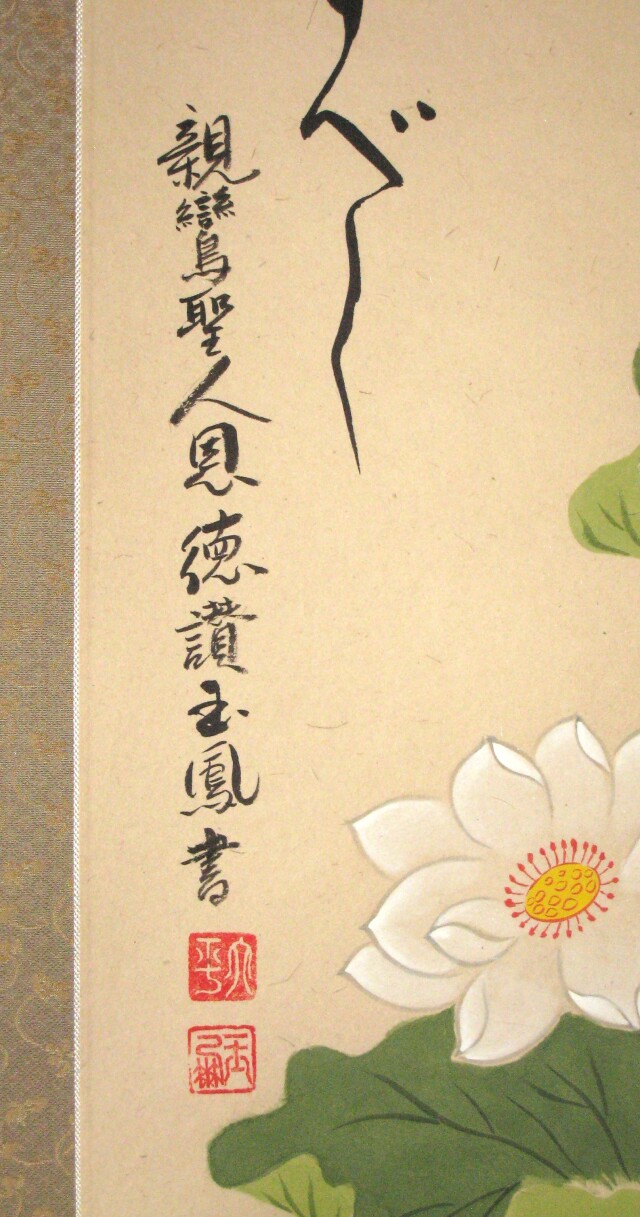 べし
親鸞聖人恩德讃玉鳳書